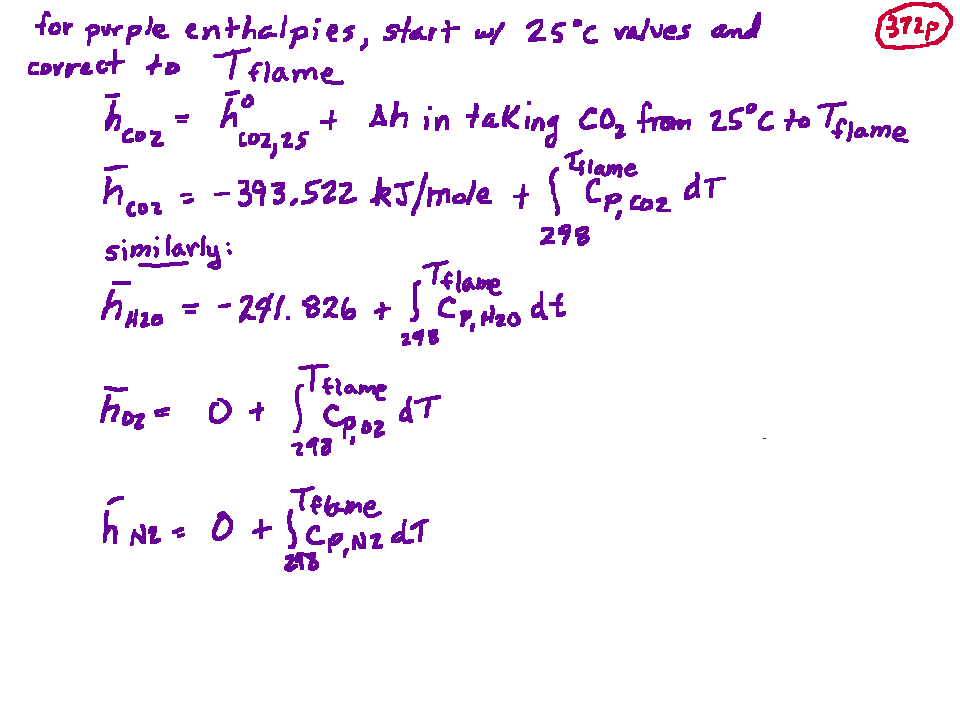 for purple enthalpies, start w/ 25°C values and
372p
correct to T_flame
h̄_CO2 = h̄°_CO2,25 + Δh in taking CO₂ from 25°C to T_flame
h̄_CO2 = -393.522 kJ/mole + ∫_298^Tflame C_P,CO2 dT
similarly:
h̄_H2O = -241.826 + ∫_298^Tflame C_P,H2O dt
h̄_O2 = 0 + ∫_298^Tflame C_P,O2 dT
h̄_N2 = 0 + ∫_298^Tflame C_P,N2 dT